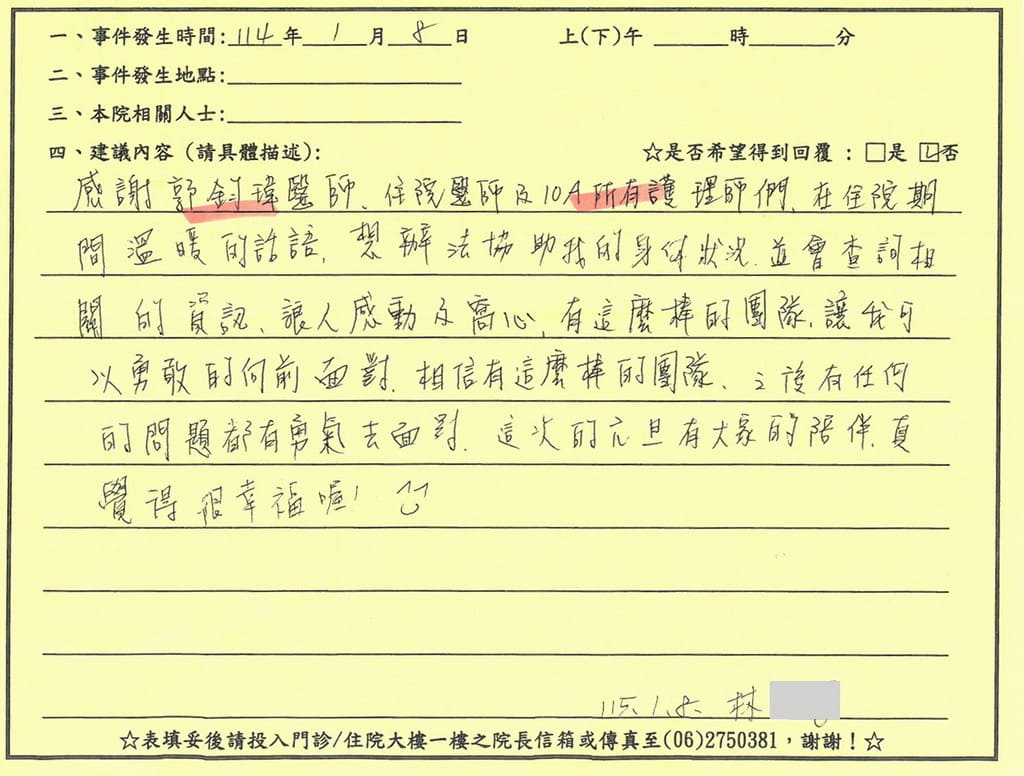 一、事件發生時間:114年1月8日 上(下)午 ______時______分
二、事件發生地點:
三、本院相關人士:
四、建議內容(請具體描述): ☆是否希望得到回覆:□是 ☑否
感謝郭釗瑋醫師、住院醫師及10A所有護理師們,在住院期
間溫暖的話語,想辦法協助我的身体狀況.並會查詢相
關的資訊、讓人感動及窩心,有這麼棒的團隊,讓我可
以勇敢的向前面對.相信有這麼棒的團隊、之後有任何
的問題都有勇氣去面對.這次的元旦有大家的陪伴,真
覺得很幸福喔!
115.1.8. 林
☆表填妥後請投入門診/住院大樓一樓之院長信箱或傳真至(06)2750381,謝謝!☆